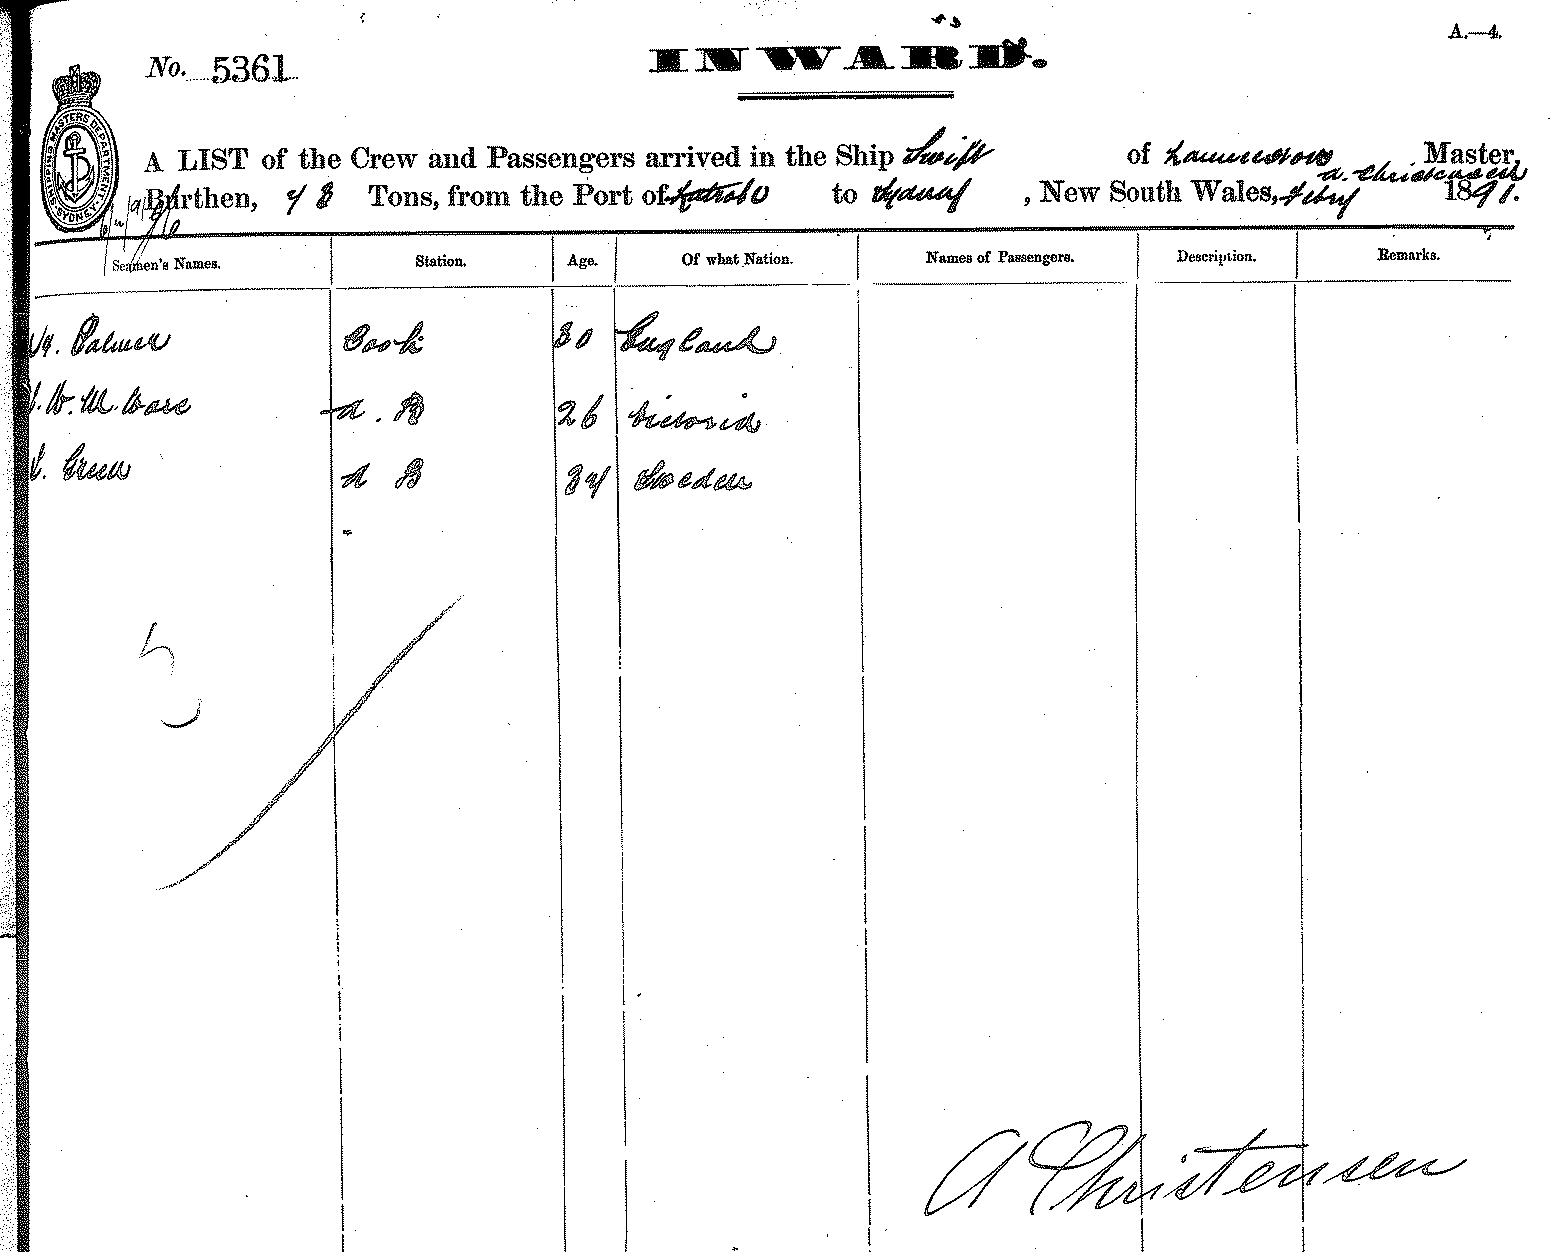 A.—4.
INWARD.
No. 5361
SHIPPING MASTERS DEPARTMENT SYDNEY
A LIST of the Crew and Passengers arrived in the Ship Swift of Launceston A. Christensen Master,
Burthen, 43 Tons, from the Port of Latrobe to Sydney, New South Wales, Feby 1891.
Seamen's Names. Station. Age. Of what Nation. Names of Passengers. Description. Remarks.
Palmer Cook 30 England
W. M. Ware A. B 26 Victoria
Green A B 34 Sweden
A Christensen